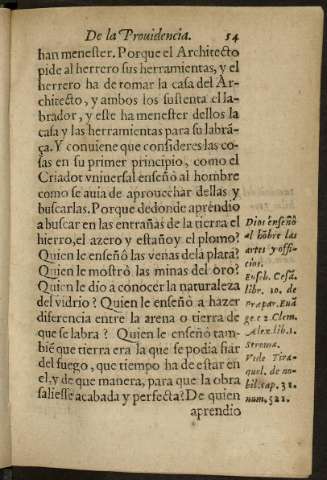 De la Prouidencia. 54
han menester. Porque el Architecto
pide al herrero sus herramientas, y el
herrero ha de tomar la casa del Ar-
chitecto, y ambos los sustenta el la-
brador, y este ha menester dellos la
casa y las herramientas para su labrã-
ça. Y conuiene que consideres las co-
sas en su primer principio, como el
Criador vniuersal enseñó al hombre
como se auia de aprouechar dellas y
buscarlas. Porque de donde aprendio
a buscar en las entrañas de la tierra el
hierro, el azero y estaño y el plomo?
Quien le enseñó las venas de la plata?
Quien le mostrò las minas del oro?
Quien le dio a conocer la naturaleza
del vidrio? Quien le enseñó a hazer
diferencia entre la arena o tierra de
que se labra? Quien le enseñó tam-
biẽ que tierra era la que se podia fiar
del fuego, que tiempo ha de estar en
el, y de que manera, para que la obra
saliesse acabada y perfecta? De quien
aprendio
Dios enseñò
al hõbre las
artes y offi-
cios.
Euseb. Cesa.
libr. 10. de
Præpar. Euã
ge. c 2. Clem.
Alex. lib. 1.
Stroma.
Vide Tira-
quel. de no-
bil. cap. 31.
num. 521.